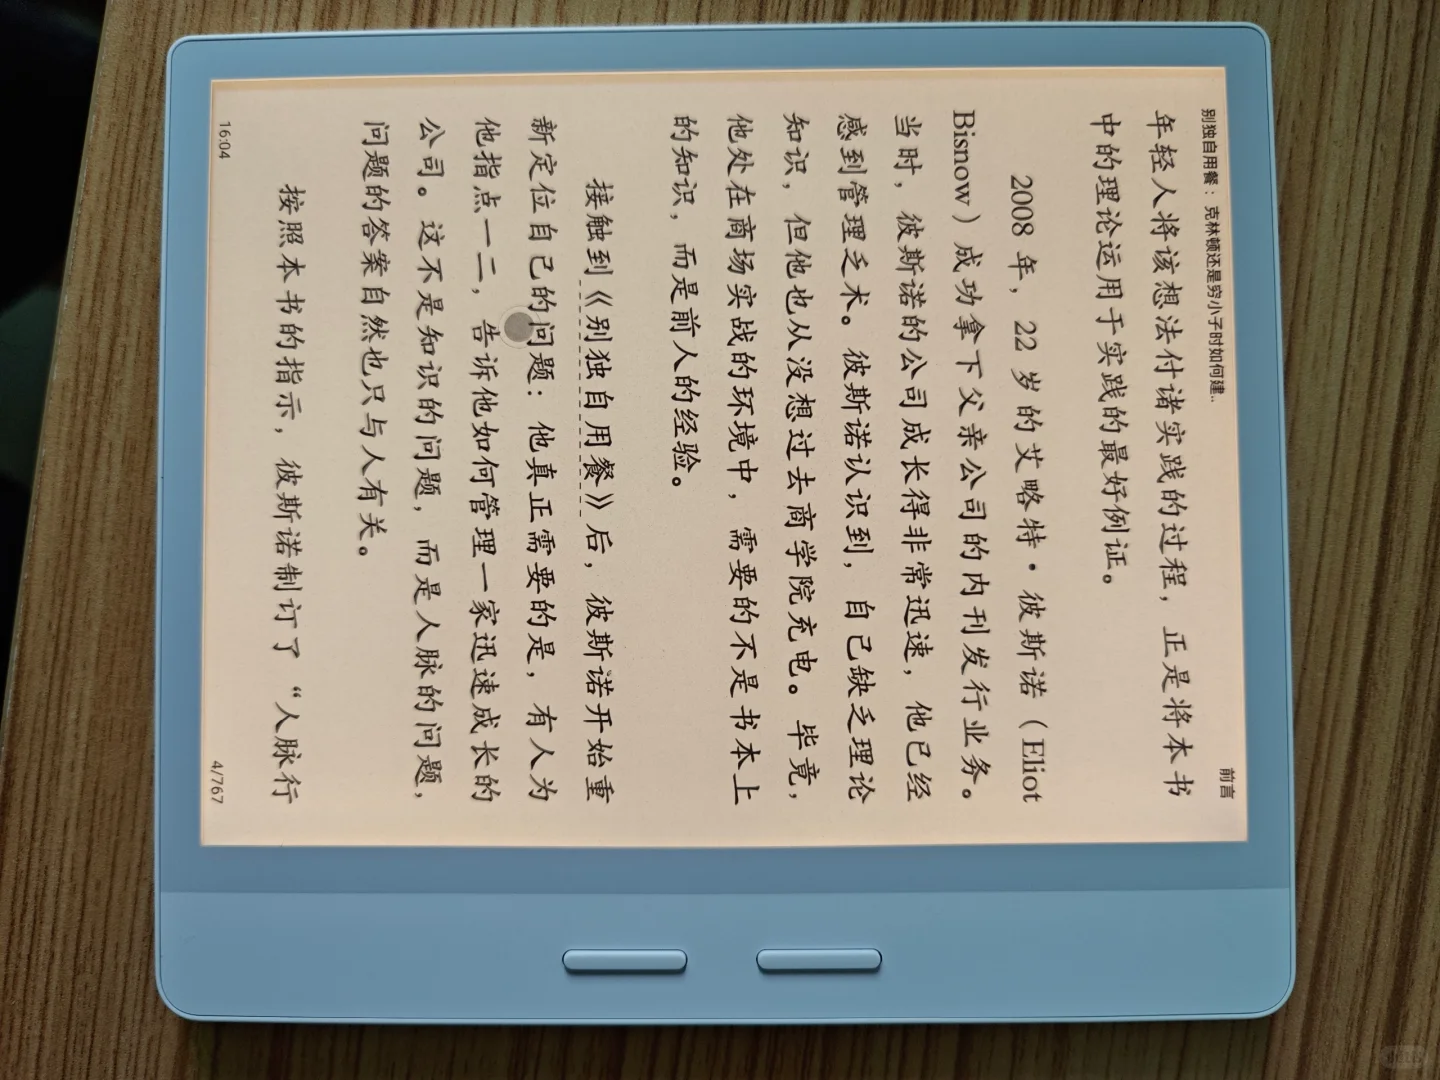 别独自用餐：克林顿还是穷小子时如何建..
前言
年轻人将该想法付诸实践的过程，正是将本书
中的理论运用于实践的最好例证。
2008 年，22 岁的艾略特·彼斯诺（Eliot
Bisnow）成功拿下父亲公司的内刊发行业务。
当时，彼斯诺的公司成长得非常迅速，他已经
感到管理乏术。彼斯诺认识到，自己缺乏理论
知识，但他也从没想过去商学院充电。毕竟，
他处在商场实战的环境中，需要的不是书本上
的知识，而是前人的经验。
接触到《别独自用餐》后，彼斯诺开始重
新定位自己的问题：他真正需要的是，有人为
他指点一二，告诉他如何管理一家迅速成长的
公司。这不是知识的问题，而是人脉的问题，
问题的答案自然也只与人有关。
按照本书的指示，彼斯诺制订了“人脉行
16:04
4/767